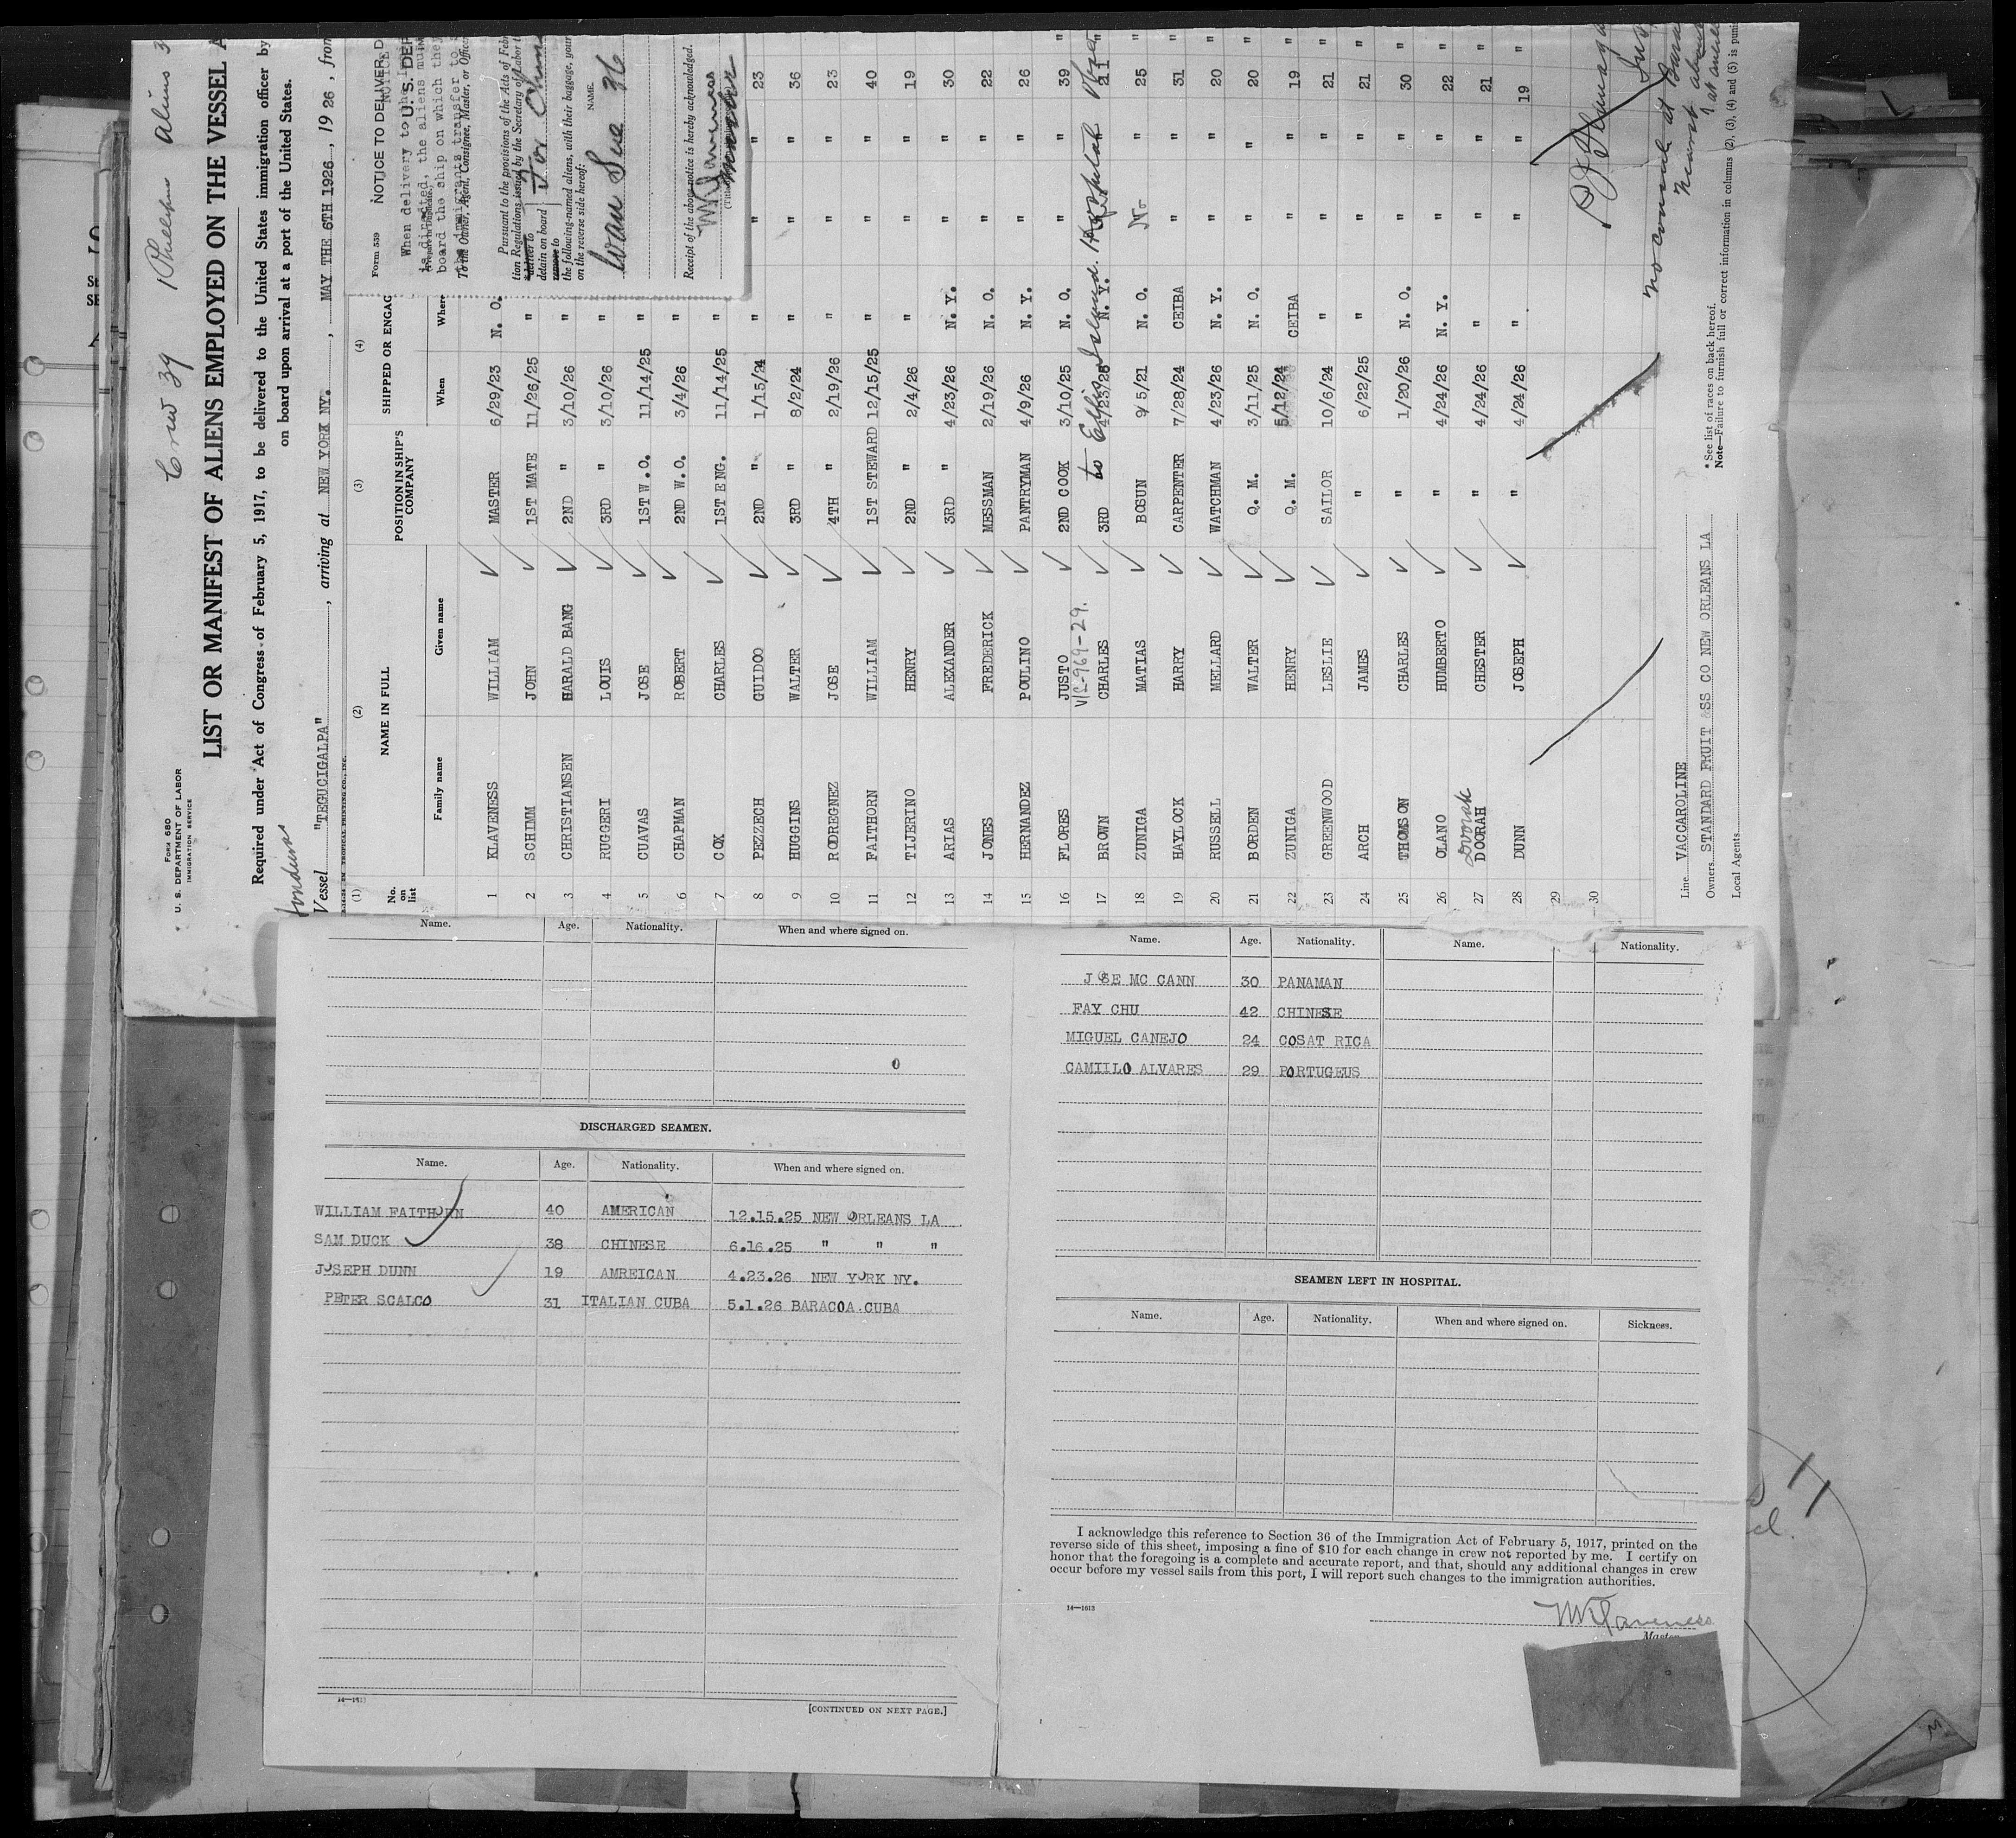 Crew 39
Aliens 3
Form 680
U. S. DEPARTMENT OF LABOR
IMMIGRATION SERVICE
LIST OR MANIFEST OF ALIENS EMPLOYED ON THE VESSEL A
Required under Act of Congress of February 5, 1917, to be delivered to the United States immigration officer by
on board upon arrival at a port of the United States.
Vessel "TEGUCIGALPA", arriving at NEW YORK NY., MAY THE 6TH 1926, 19 26, from
(1) (2) (3) (4)
No. on list NAME IN FULL POSITION IN SHIP'S COMPANY SHIPPED OR ENGAG
Family name Given name When Where
1 KLAVENESS WILLIAM MASTER 6/29/23 N. O.
2 SCHIMM JOHN 1ST MATE 11/26/25 "
3 CHRISTIANSEN HARALD BANG 2ND " 3/10/26 "
4 RUGGERI LOUIS 3RD " 3/10/26 "
5 CUAVAS JOSE 1ST W.O. 11/14/25 "
6 CHAPMAN ROBERT 2ND W.O. 3/4/26 "
7 COX CHARLES 1ST ENG. 11/14/25 "
8 PEZZECH GUIDOO 2ND " 1/15/24 " " " 23
9 HUGGINS WALTER 3RD " 8/2/24 " " " 36
10 RODREGNEZ JOSE 4TH " 2/19/26 " " " 23
11 FAITHORN WILLIAM 1ST STEWARD 12/15/25 " " " 40
12 TIJERINO HENRY 2ND " 2/4/26 " " " 19
13 ARIAS ALEXANDER 3RD " 4/23/26 N. Y. " " 30 "
14 JONES FREDERICK MESSMAN 2/19/26 N. O. " " 22 "
15 HERNANDEZ POULINO PANTRYMAN 4/9/26 N. Y. " " 26 "
16 FLORES JUSTO 2ND COOK 3/10/25 N. O. " " 39 "
to Ellis Island Hospital
17 BROWN CHARLES 3RD 4/23/25 N. Y. 21 "
18 ZUNIGA MATIAS BOSUN 9/5/21 N. O. No " 25 "
19 HAYLOCK HARY CARPENTER 7/28/24 CEIBA " " 31 "
20 RUSSELL MELLARD WATCHMAN 4/23/26 N. Y. " " 20 "
21 BORDEN WALTER Q. M. 3/11/25 N. O. " " 20 "
22 ZUNIGA HENRY Q. M. 5/12/24 CEIBA " " 19 "
23 GREENWOOD LESLIE SAILOR 10/6/24 " " " 21 "
24 ARCH JAMES " 6/22/25 " " " 21 "
25 THOMSON CHARLES " 1/20/26 N. O. " " 30 "
26 OLANO HUMBERTO " 4/24/26 N. Y. " " 22 "
27 DOORAH CHESTER " 4/24/26 " " " 21 "
28 DUNN JOSEPH " 4/24/26 " " " 19 "
29
30
Line VACCAROLINE
Owners STANDARD FRUIT &SS CO NEW ORLEANS LA
Local Agents
* See list of races on back hereof.
Note—Failure to furnish full or correct information in columns (2), (3), (4) and (5) is puni
no consul at
nearest
Form 539 NOTICE TO DELIVER, D
NOTICE
U. S. DEP
When delivery to
is directed, the aliens mu
board the ship on which they
the immigrants transfer to
To the Owner, Agent, Consignee, Master, or Officer
Pursuant to the provisions of the Acts of Feb
tion Regulations issued by the Secretary of Labor t
deliver to
detain on board
remove to
the following-named aliens, with their baggage, your
on the reverse side hereof:
NAME.
Wan Sue 36
Receipt of the above notice is hereby acknowledged.
Name. Age. Nationality. When and where signed on.
DISCHARGED SEAMEN.
Name. Age. Nationality. When and where signed on.
WILLIAM FAITHORN 40 AMERICAN 12.15.25 NEW ORLEANS LA
SAM DUCK 38 CHINESE 6.16.25 " " "
JOSEPH DUNN 19 AMREICAN 4.23.26 NEW YORK NY.
PETER SCALCO 31 ITALIAN CUBA 5.1.26 BARACOA.CUBA
[CONTINUED ON NEXT PAGE.]
Name. Age. Nationality. Name. Nationality.
JOSE MC CANN 30 PANAMAN
FAY CHU 42 CHINESE
MIGUEL CANEJO 24 COSAT RICA
CAMIILO ALVARES 29 PORTUGEUS
SEAMEN LEFT IN HOSPITAL.
Name. Age. Nationality. When and where signed on. Sickness.
I acknowledge this reference to Section 36 of the Immigration Act of February 5, 1917, printed on the
reverse side of this sheet, imposing a fine of $10 for each change in crew not reported by me. I certify on
honor that the foregoing is a complete and accurate report, and that, should any additional changes in crew
occur before my vessel sails from this port, I will report such changes to the immigration authorities.
14—1613
Master